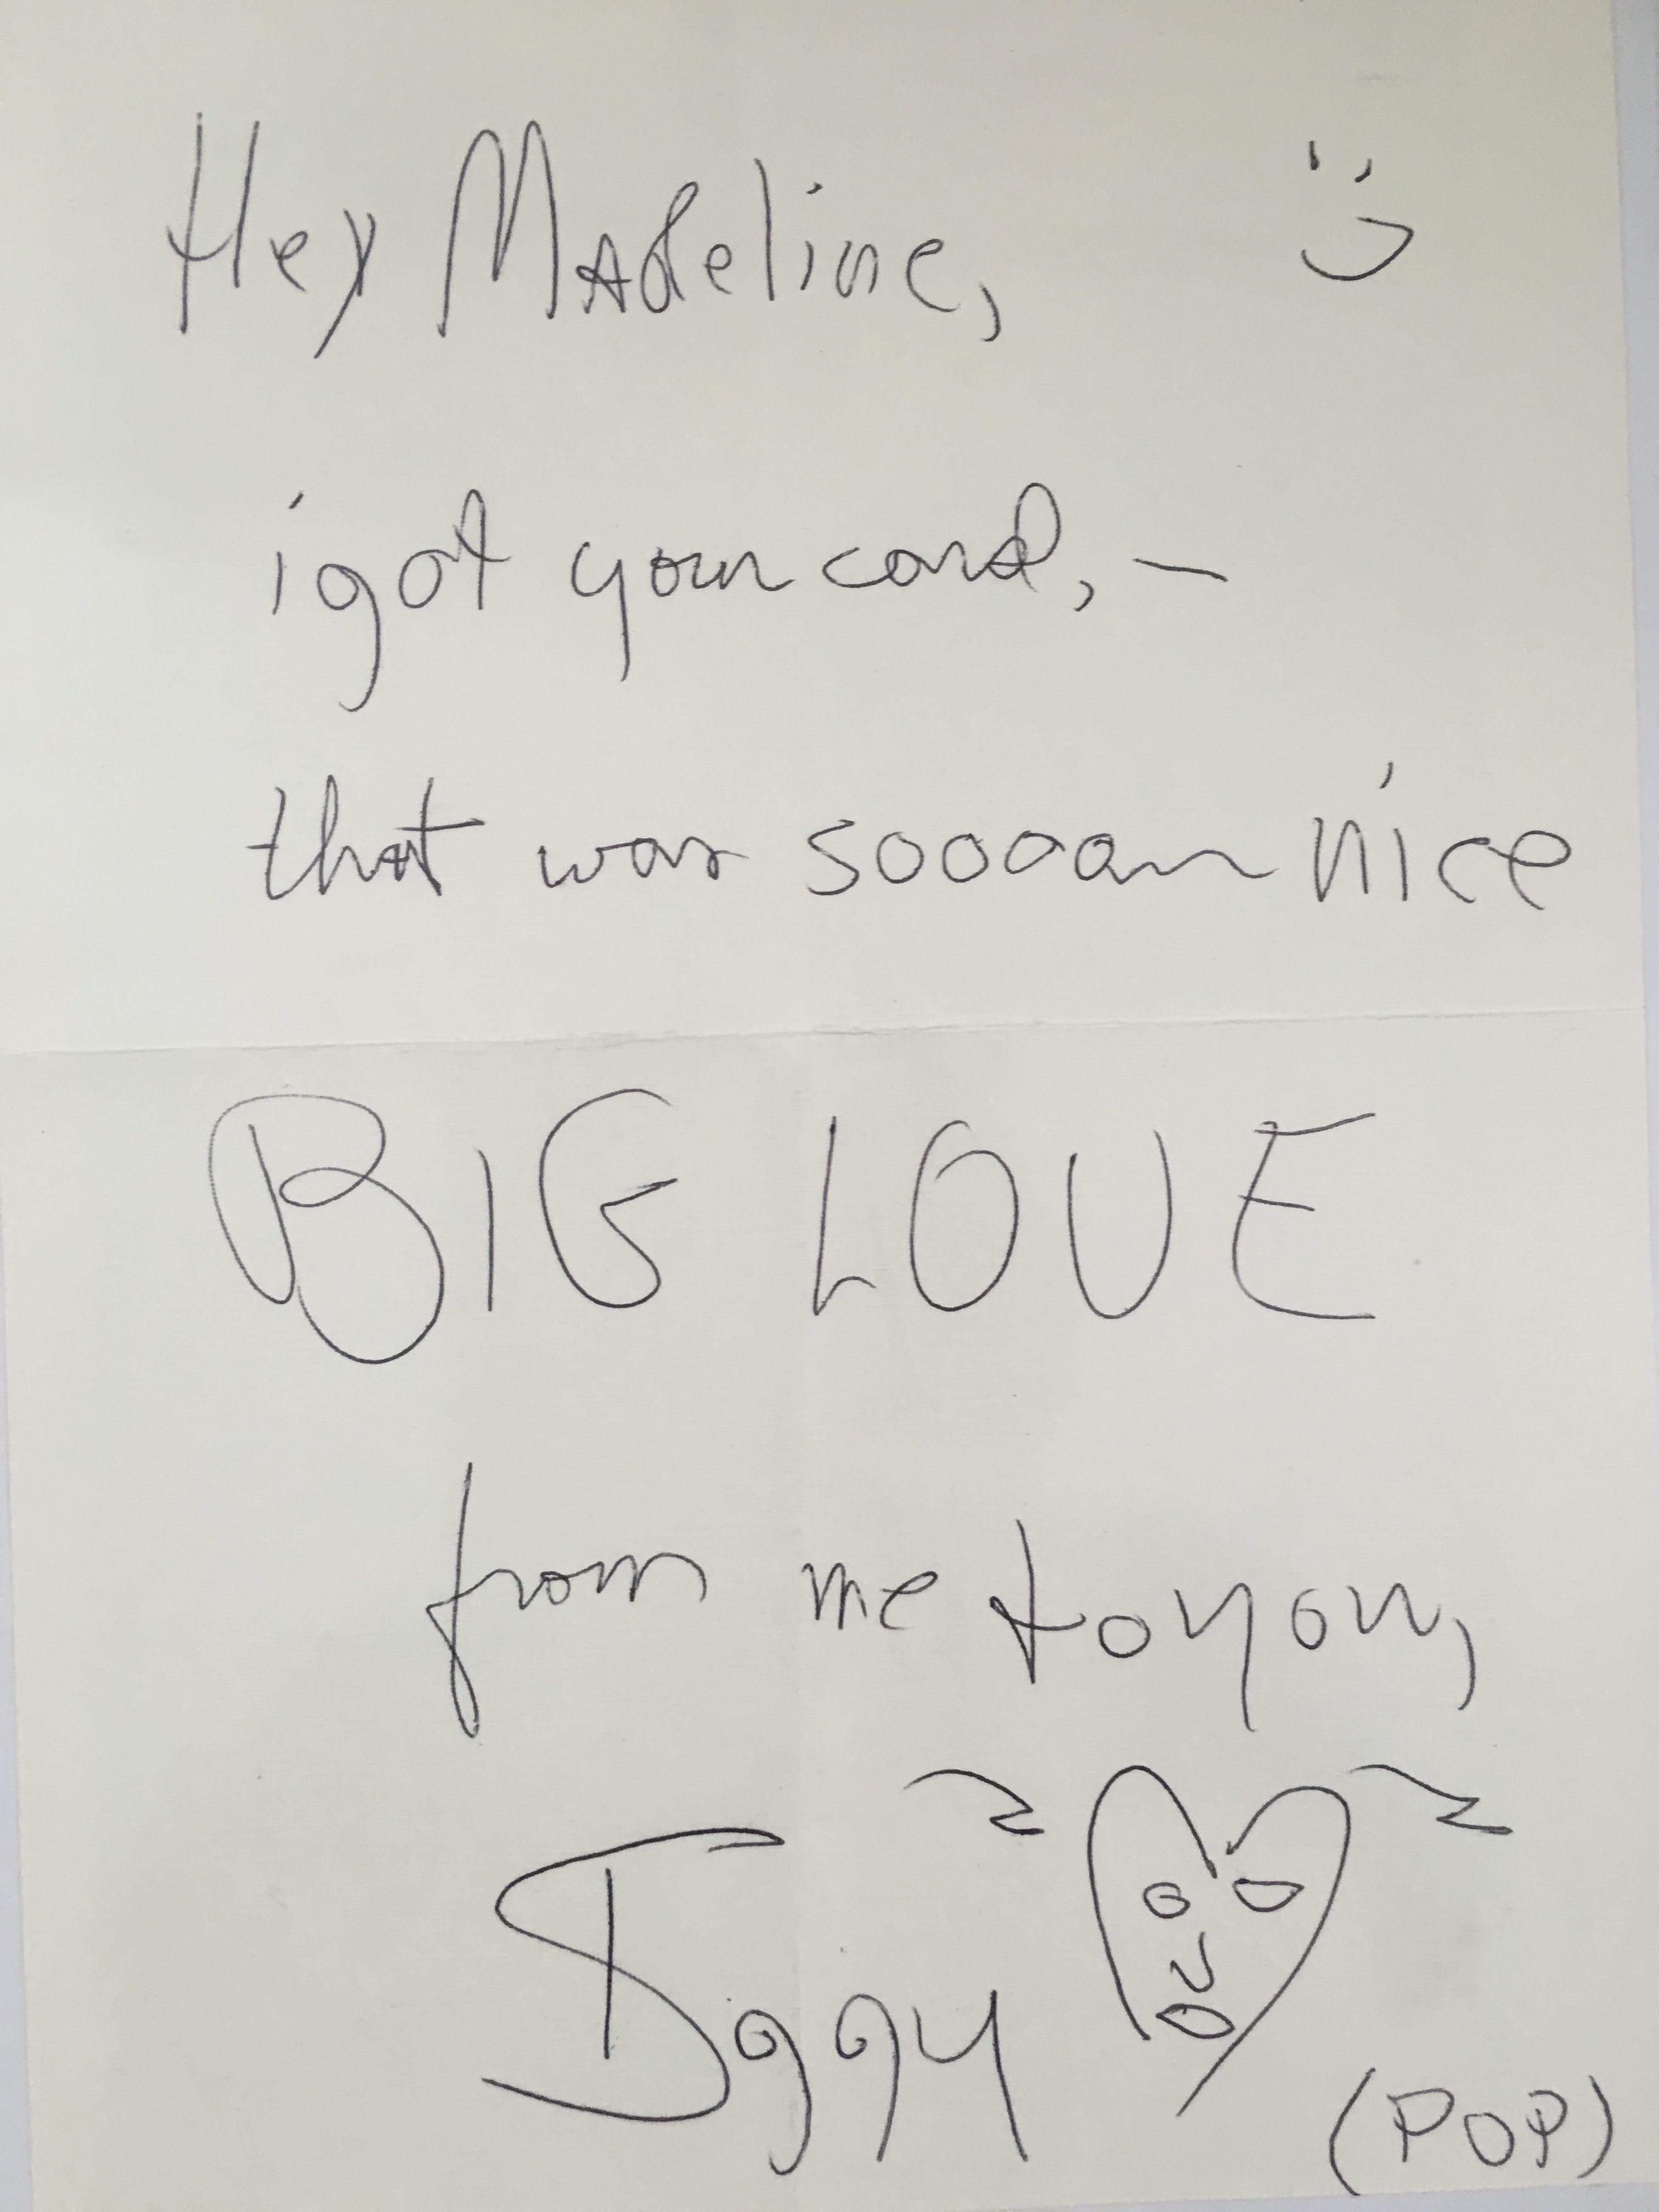 Hey Madeline, :)
i got your card, –
that was sooooo nice
BIG LOVE
from me to you,
Iggy
(POP)